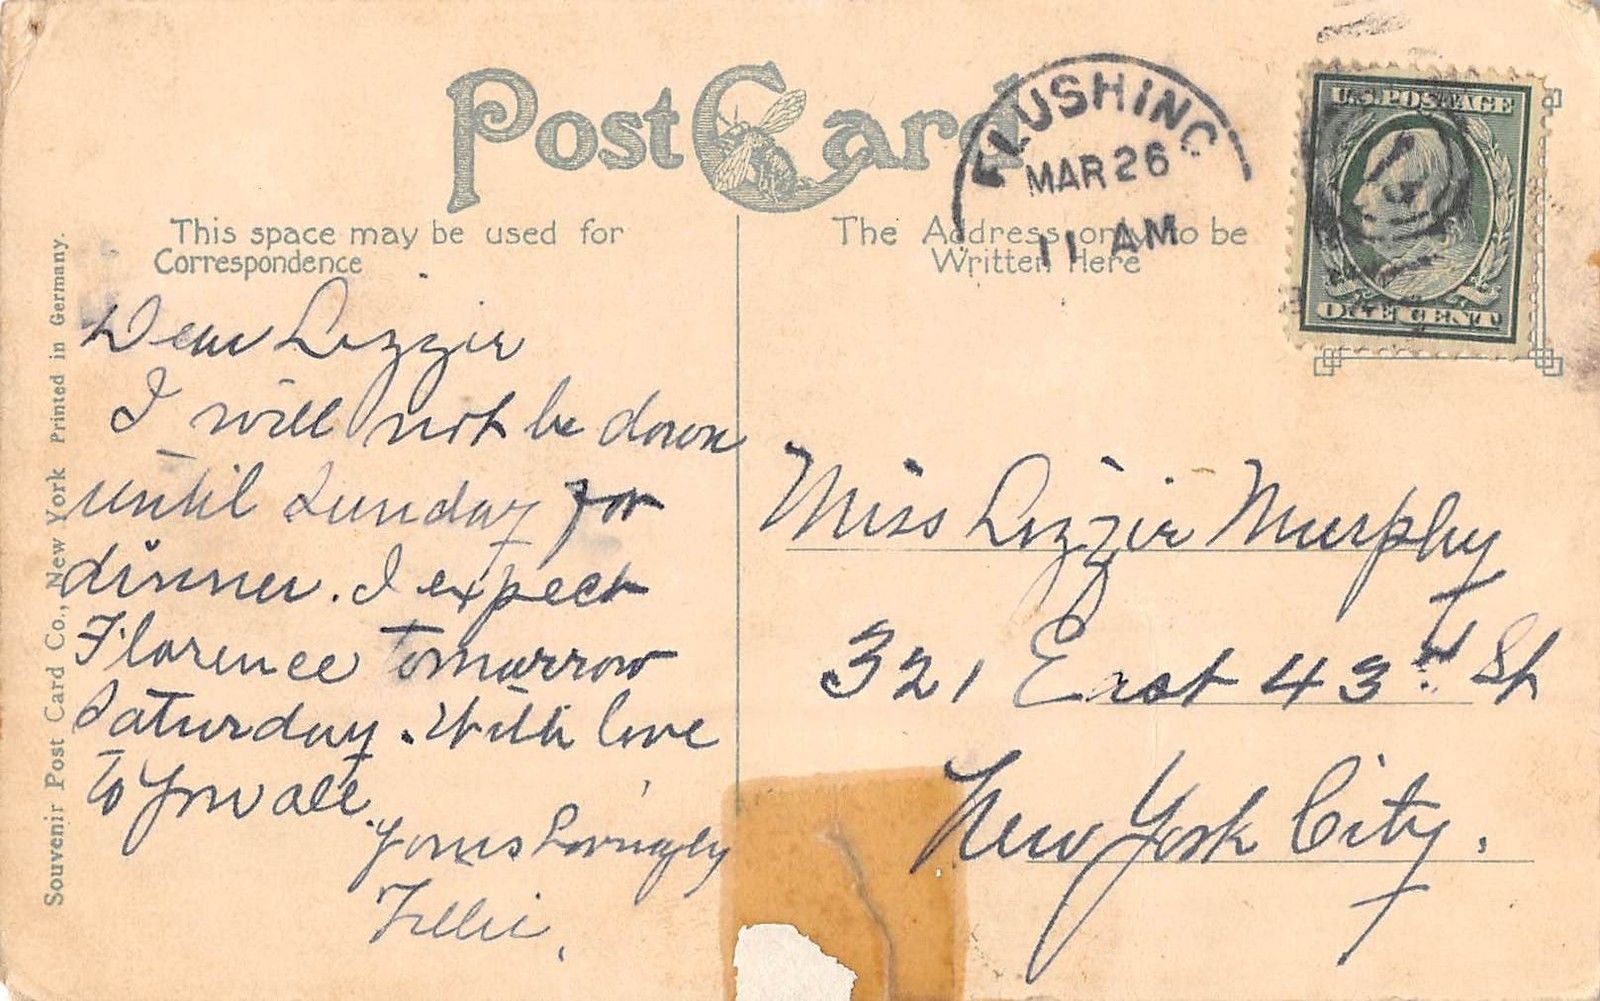 Post Card
FLUSHING
MAR 26
11 AM
U.S. POSTAGE
ONE CENT
This space may be used for
Correspondence
The Address only to be
Written Here
Souvenir Post Card Co., New York Printed in Germany.
Dear Lizzie
I will not be down
until Sunday for
dinner. I expect
Florence tomorrow
Saturday. With love
to you all.
Yours Lovingly
Tillie.
Miss Lizzie Murphy
321 East 43rd St
New York City.